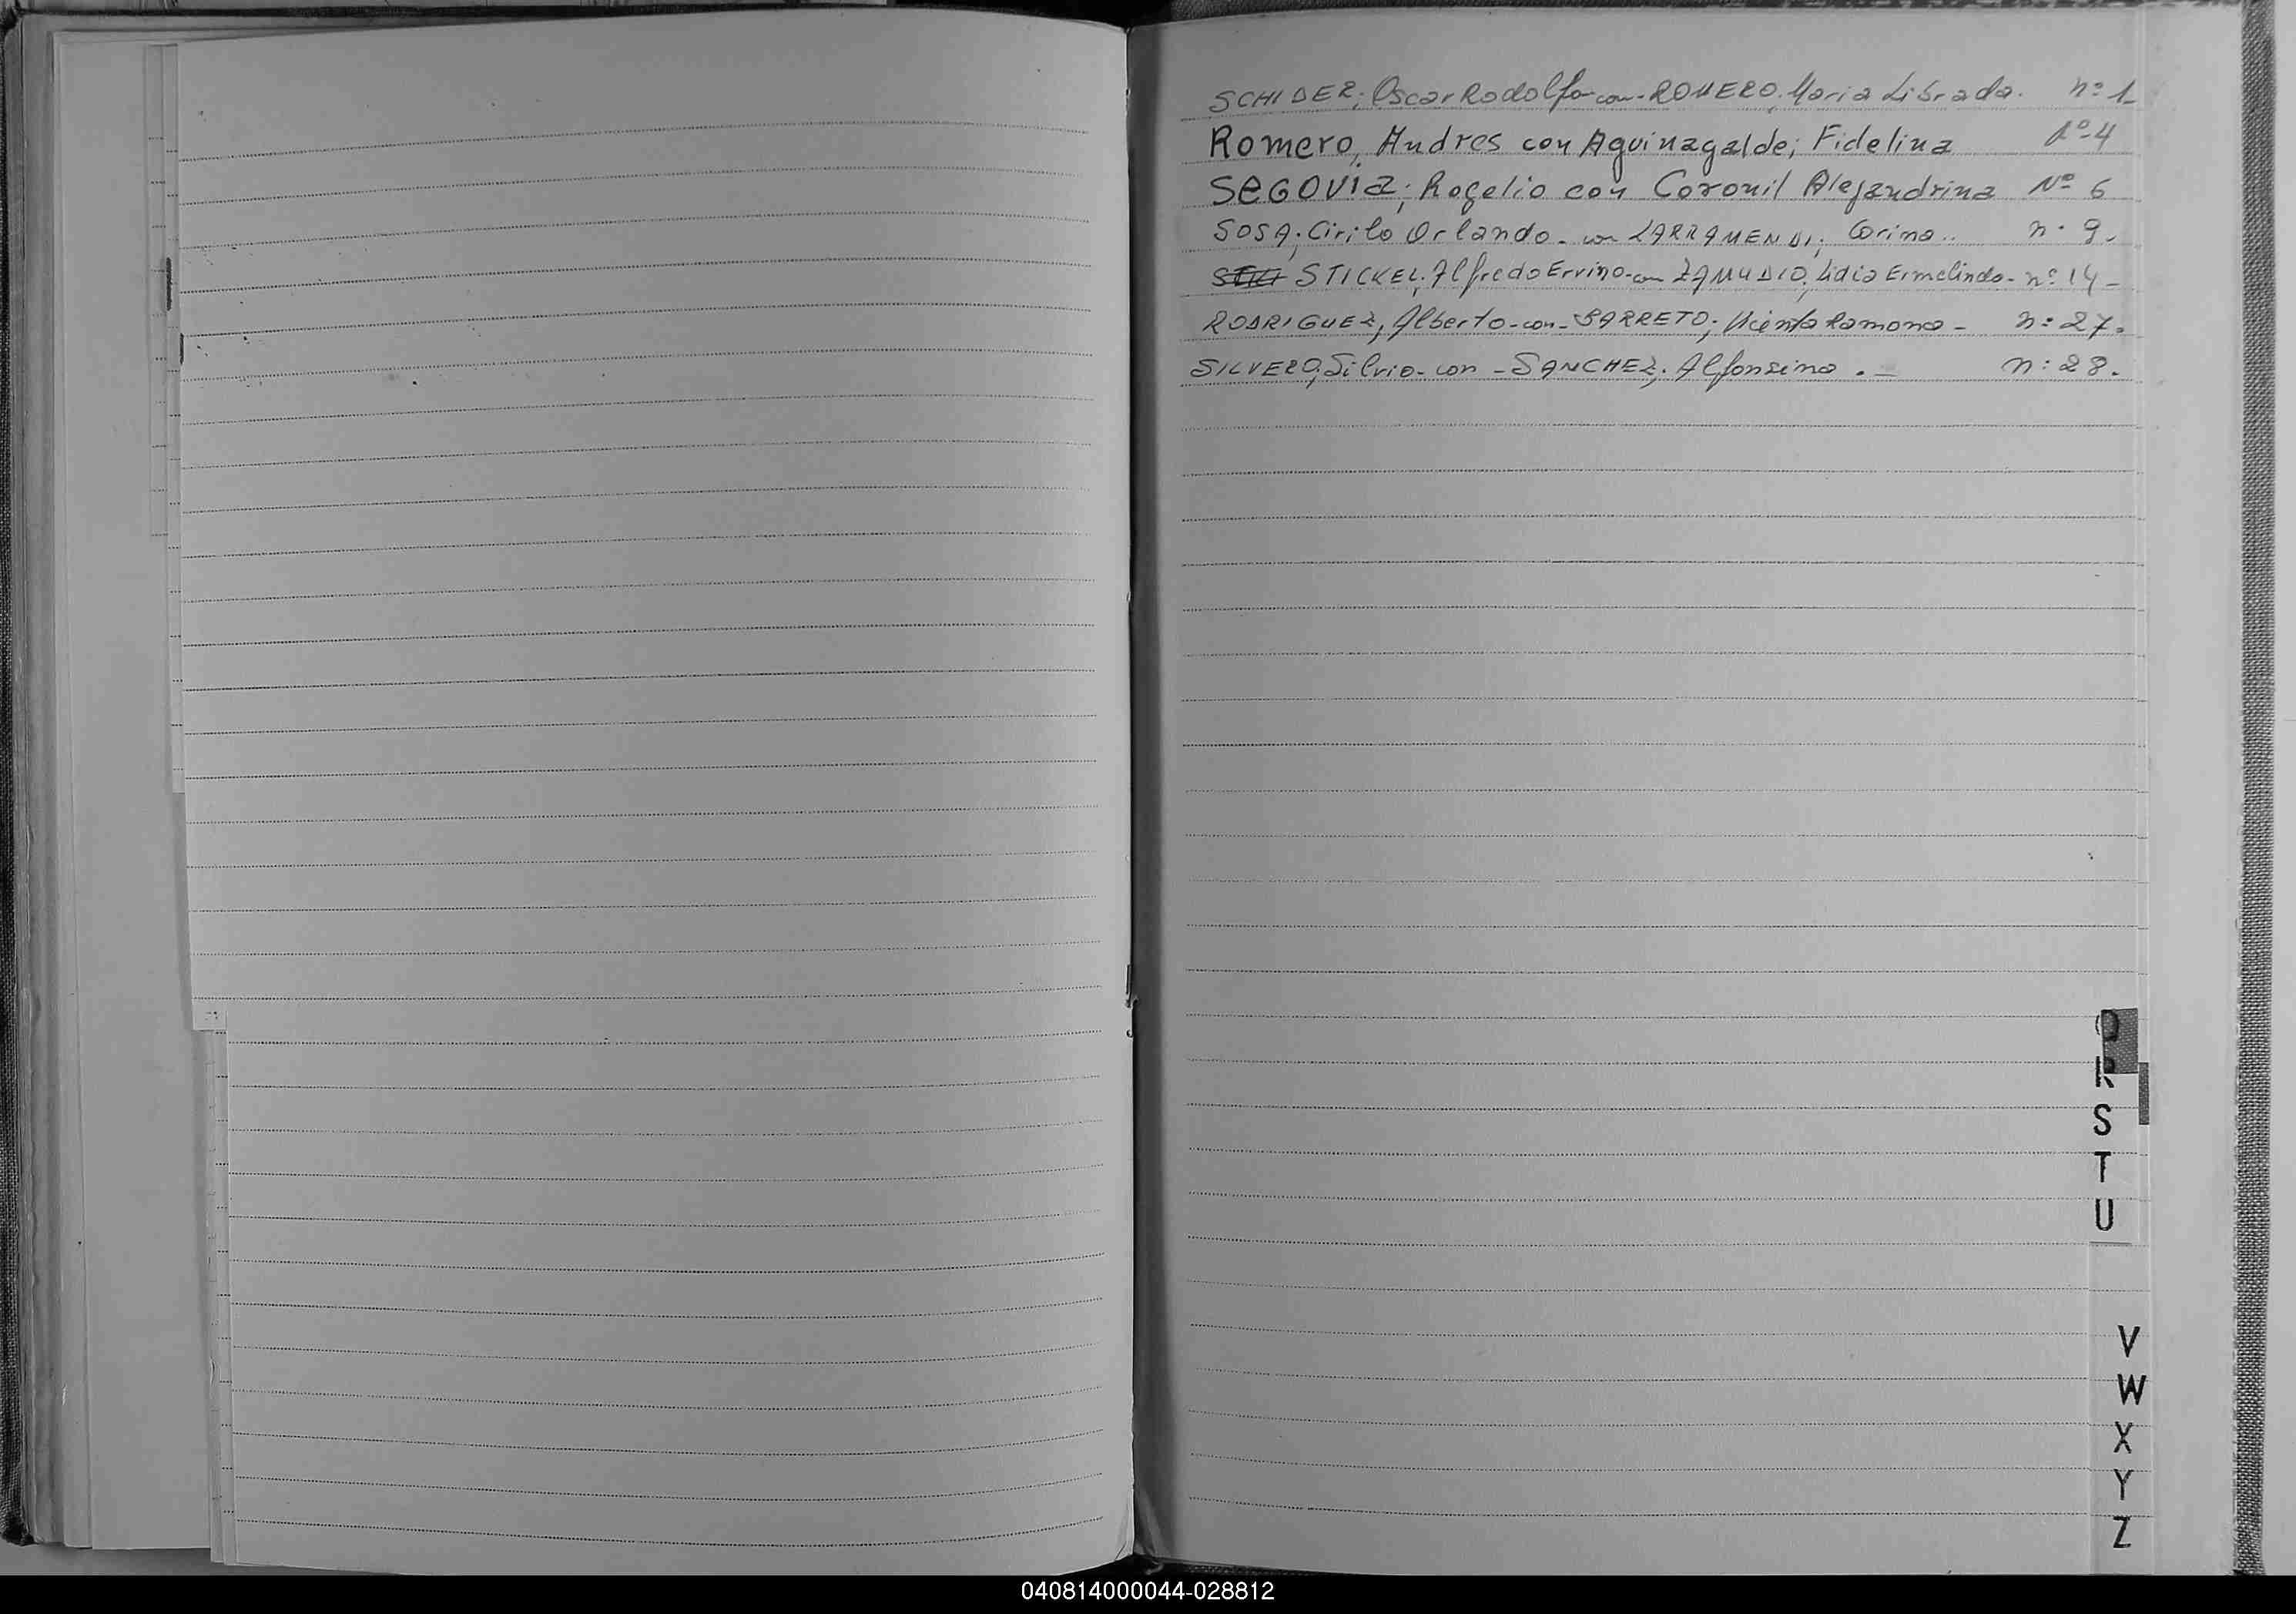 SCHIDER; Oscar Rodolfo - con - ROMERO, Maria Librada. nº 1
Romero, Andres con Aguinagalde; Fidelina Nº 4
SEGOVIA; Rogelio con Coronil Alejandrina Nº 6
SOSA; Cirilo Orlando - con LARRAMENDI; Corina.. n: 9.
STICKEL; Alfredo Ervino - con ZAMUDIO; Lidia Ermelinda - nº 14 -
RODRIGUEZ, Alberto - con - BARRETO; Vicenta Ramona - n: 27.
SILVERO; Silvio - con - SANCHEZ; Alfonsina . - n: 28.
Q
R
S
T
U
V
W
X
Y
Z
040814000044-028812